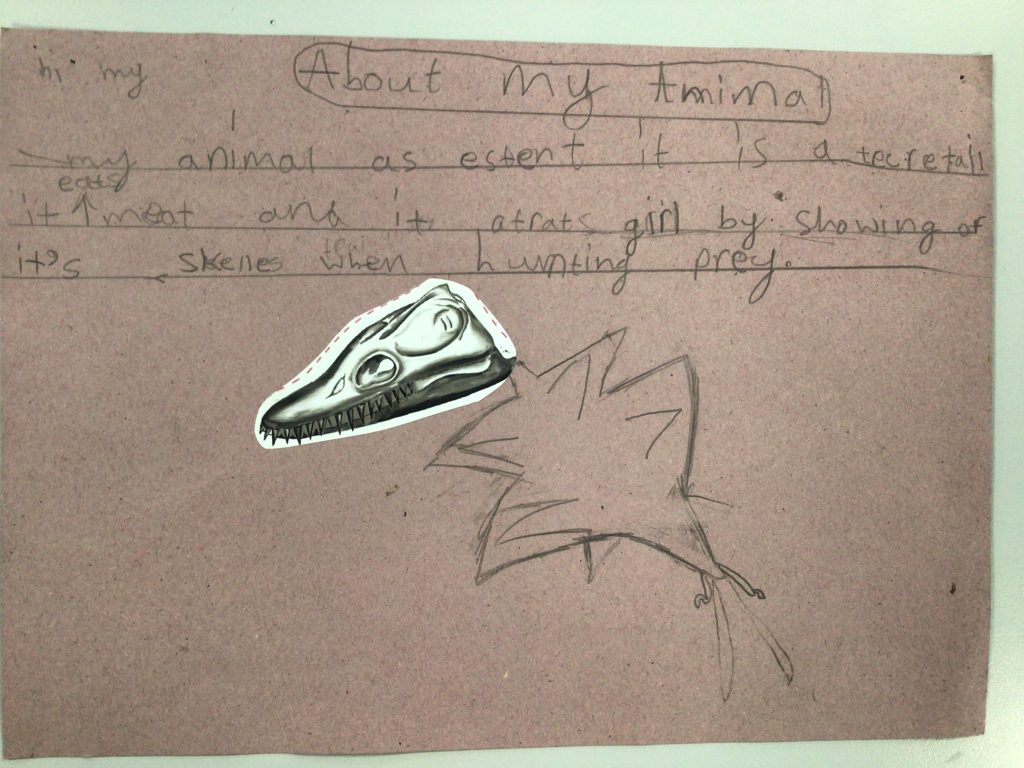 About my Amimal
hi my
my animal as estent it is a tecretall
eats
it meat and it atrats girl by showing of
it's skelles when hunting prey.